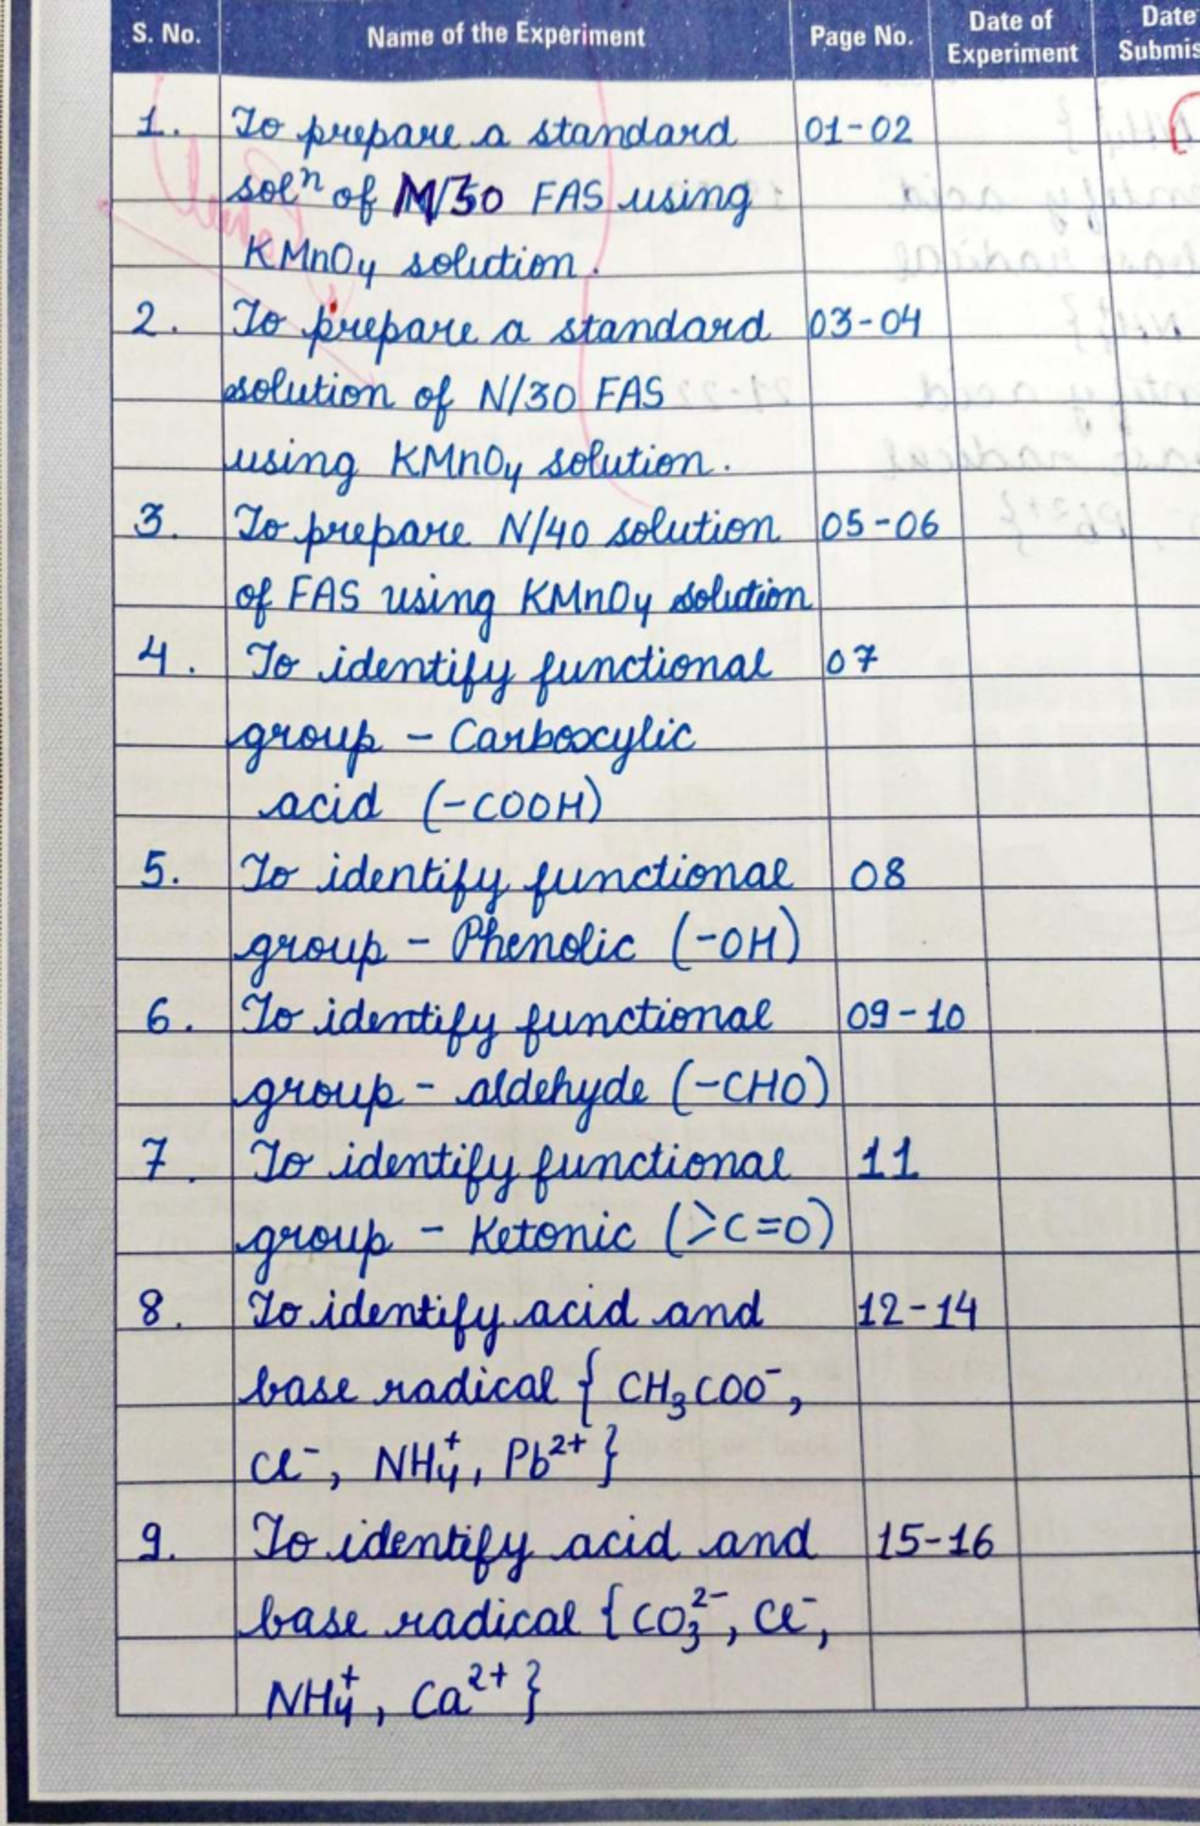 S. No. Name of the Experiment Page No. Date of Experiment Date Submis
1. To prepare a standard 01-02
solⁿ of M/50 FAS using
KMnO₄ solution.
2. To prepare a standard 03-04
solution of N/30 FAS
using KMnO₄ solution.
3. To prepare N/40 solution 05-06
of FAS using KMnO₄ solution
4. To identify functional 07
group - Carboxylic
acid (-COOH)
5. To identify functional 08
group - Phenolic (-OH)
6. To identify functional 09-10
group - aldehyde (-CHO)
7. To identify functional 11
group - Ketonic (>C=O)
8. To identify acid and 12-14
base radical { CH₃COO⁻,
Cl⁻, NH₄⁺, Pb²⁺ }
9. To identify acid and 15-16
base radical { CO₃²⁻, Cl⁻,
NH₄⁺, Ca²⁺ }